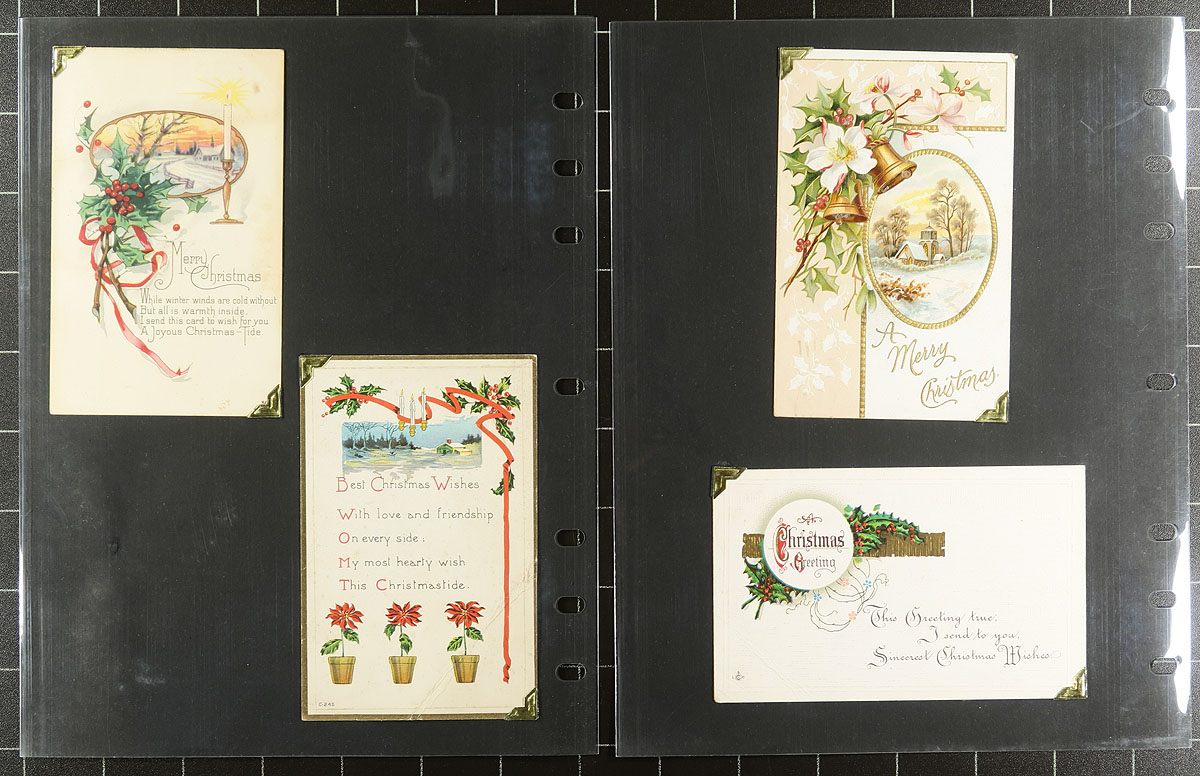 Merry
Christmas
While winter winds are cold without
But all is warmth inside.
I send this card to wish for you
A Joyous Christmas-Tide.
Best Christmas Wishes
With love and friendship
On every side;
My most hearty wish
This Christmastide.
C-245
A
Merry
Christmas.
A
Christmas
Greeting
This Greeting true,
I send to you,
Sincerest Christmas Wishes